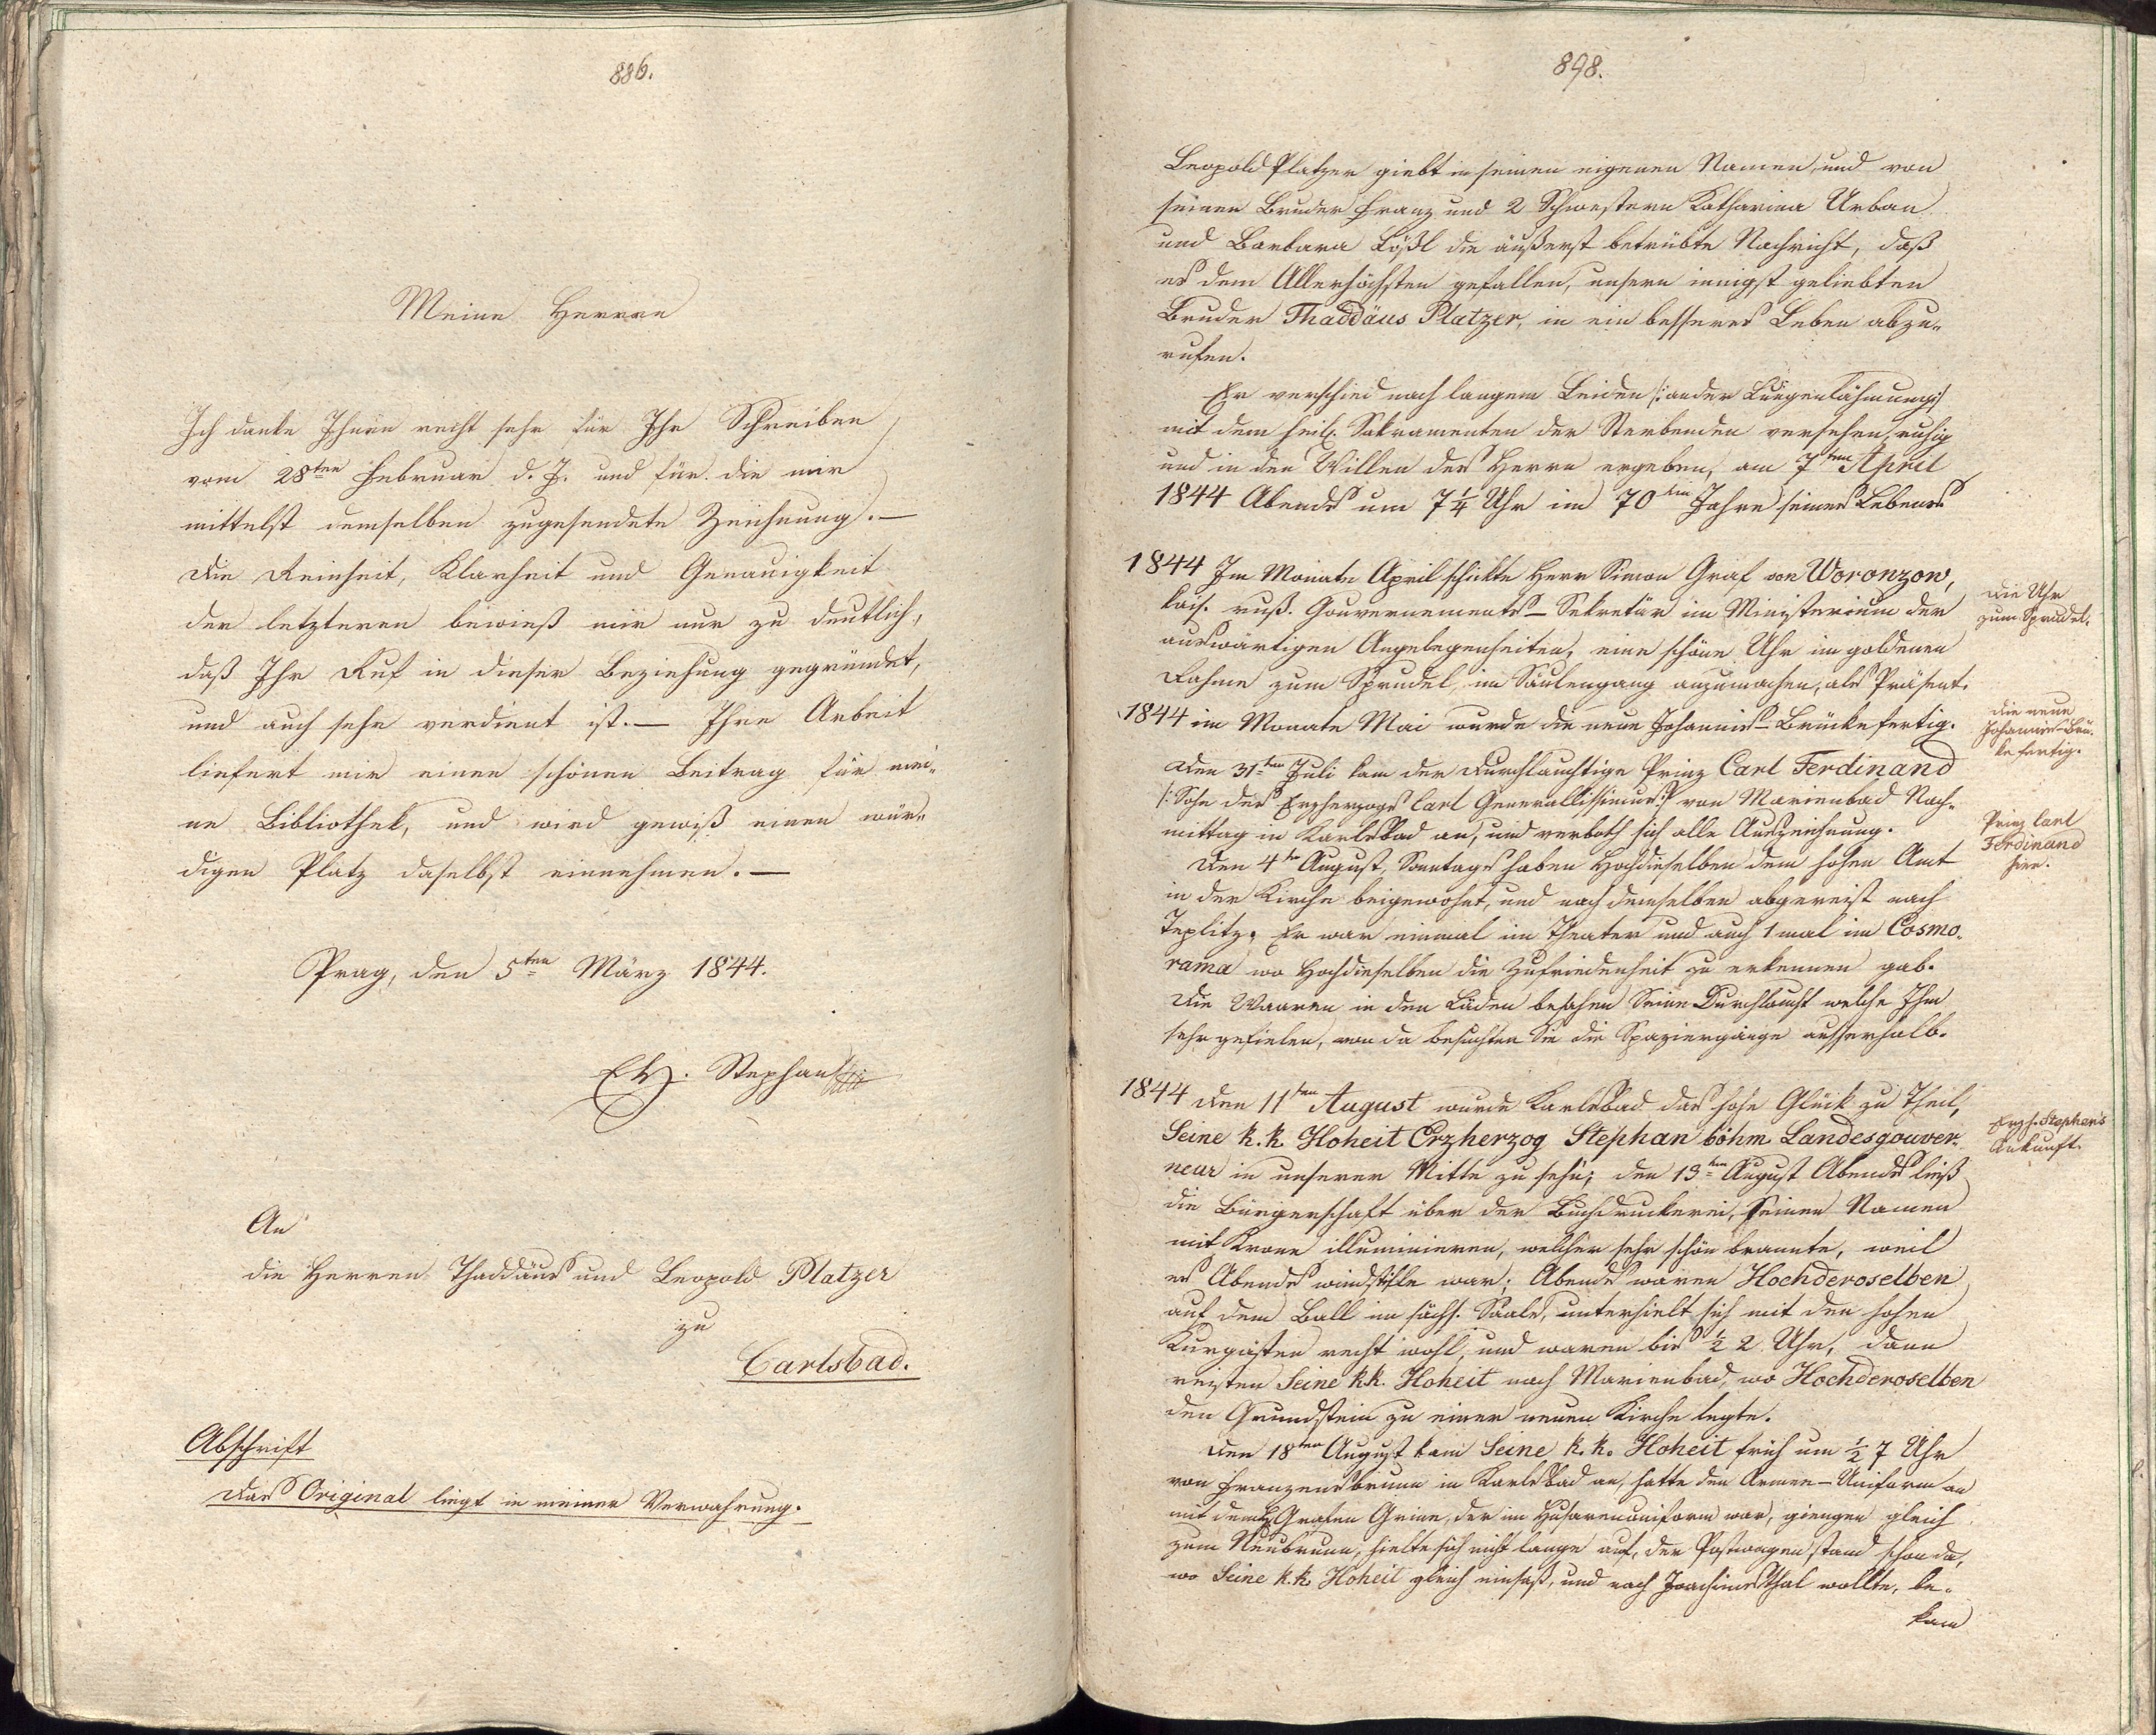 886.
Meine Herren
Ich danke Ihnen recht sehr für Ihr Schreiben
vom 28ten Februar d. J. und für die mir
mittelst demselben zugesendete Zeichnung. —
Die Reinheit, Klarheit und Genauigkeit
der letzteren beweist mir nur zu deutlich,
daß Ihr Ruf in dieser Beziehung gegründet,
und auch sehr verdient ist. — Ihre Arbeit
liefert mir einen schönen Beitrag für mei-
ne Bibliothek, und wird gewiß einen wür-
digen Platz daselbst einnehmen. —
Prag, den 5ten März 1844.
EH. Stephan
An
die Herren Thaddäus und Leopold Platzer
zu
Carlsbad.
Abschrift
Das Original liegt in meiner Verwahrung.
898.
Leopold Platzer giebt in seinen eigenen Namen, und von
seinen Bruder Franz und 2 Schwestern Katharina Urban
und Barbara Lößl die äußerst betrübte Nachricht, daß
es dem Allerhöchsten gefallen, unsern innigst geliebten
Bruder Thaddäus Platzer, in ein besseres Leben abzu-
rufen.
Er verschied nach langem Leiden /: an der Lungenlähmung :/
mit dem heil. Sakramenten der Sterbenden versehen, ruhig
und in den Willen des Herrn ergeben, am 7ten April
1844 Abends um 7¼ Uhr im 70ten Jahre seines Lebens.
1844 Im Monate April schickte Herr Simon Graf von Woronzow,
kais. russ. Gouvernements-Sekretär im Ministerium der
auswärtigen Angelegenheiten, eine schöne Uhr im goldenen
Rahme zum Sprudel im Säulengang anzumachen, als Präsent.
Die Uhr
zum Sprudel.
1844 im Monate Mai wurde die neue Johannis-Brücke fertig.
die neue
Johannis-Brü-
ke fertig.
Den 31ten Juli kam der Durchlauchtige Prinz Carl Ferdinand
/: Sohn des Erzherzogs Carl Generallissimus :/ von Marienbad Nach-
mittag in Karlsbad an, und verboth sich alle Auszeichnung.
Prinz Carl
Ferdinand
hier.
Den 4ten August, Sonntags haben Hochdieselben dem hohen Amt
in der Kirche beigewohnt, und nach demselben abgereist nach
Teplitz. Er war einmal im Theater und auch 1 mal im Cosmo-
rama wo Hochdieselben die Zufriedenheit zu erkennen gab.
Die Waaren in den Läden besahen Seine Durchlaucht welche Ihm
sehr gefielen, von da besuchten Sie die Spaziergänge ausserhalb.
1844 Den 11ten August wurde Karlsbad das hohe Glück zu Theil,
Seine k. k. Hoheit Erzherzog Stephan böhm. Landesgouver-
neur in unserer Mitte zu sehn; den 13ten August Abends ließ
Erzh. Stephan's
Ankunft.
die Bürgerschaft über der Buchdruckerei, Seinen Namen
mit Krone illuminieren, welcher sehr schön brannte, weil
es Abends windstille war; Abends waren Hochderoselben
auf dem Ball im sächs. Saale, unterhielt sich mit den hohen
Kurgästen recht wohl, und waren bis ½ 2 Uhr, dann
reisten Seine k.k. Hoheit nach Marienbad, wo Hochderoselben
den Grundstein zu einer neuen Kirche legte.
Den 18ten August kam Seine k. k. Hoheit früh um ½ 7 Uhr
von Franzensbrunn in Karlsbad an, hatte den Armee-Uniform an
mit dem H. Grafen Grüne, der im Husarenuniform war, giengen gleich
zum Neubrunn, hielte sich nicht lange auf, der Postwagen stand schon da,
wo Seine k.k. Hoheit gleich einsaß, und nach Joachimsthal wollte, be-
kam